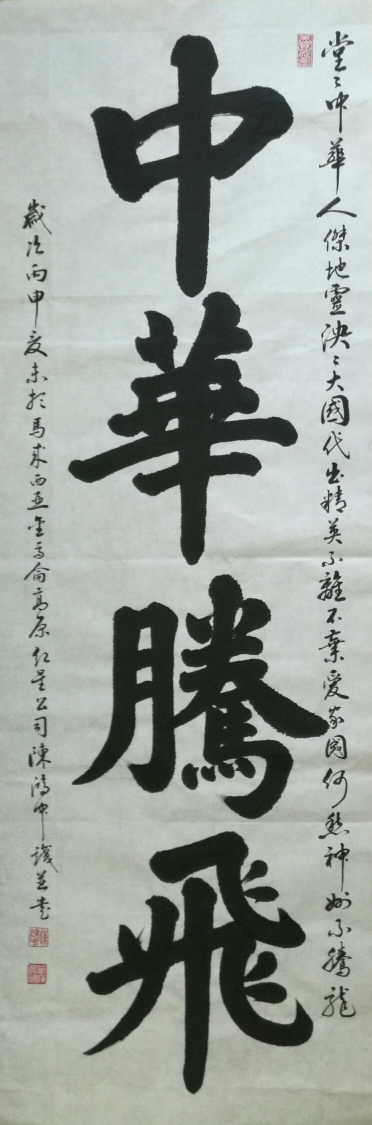 堂〻中華人傑地靈泱〻大國代出精英不離不棄愛家國何愁神州不騰龍
中華騰飛
歲次丙申夏末於馬來西亞金馬侖高原紅星公司陳鴻中撰並書